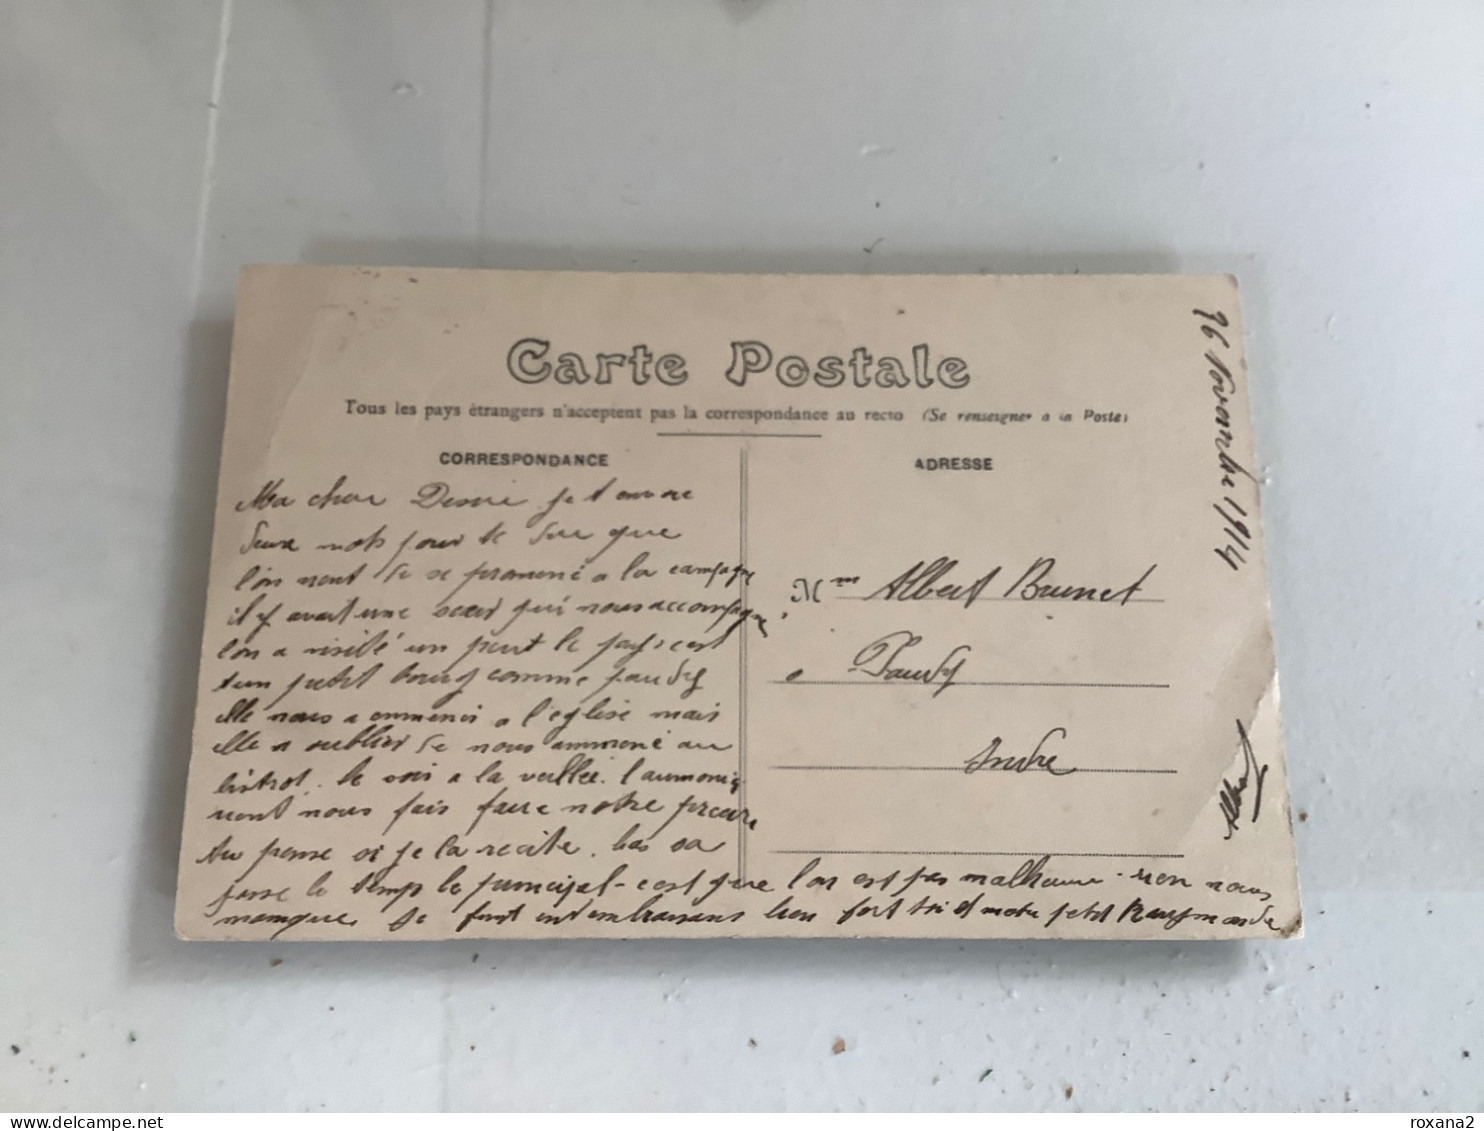 Carte Postale
Tous les pays étrangers n'acceptent pas la correspondance au recto (Se renseigner à la Poste)
CORRESPONDANCE
Ma cher Desiré je t envoie
deux mots pour te dire que
l'on vient de se promené a la campagne
il y avait une sœur qui nous accompagne
l'on a visité un peut le pays c'est
t'un petit bourg comme paudy
elle nous a emmener a l'église mais
elle a oublier de nous ammené au
bistrot. le soir a la veillée. l'aumonier
vient nous fais faire notre prière
tu pense si je la recite. bas sa
passe le temp le principal c'est que l'on est pas malheureux rien nous
manque je fini en t embrassans bien fort toi et notre petit Raymonde
ADRESSE
Mme Albert Brunet
a Paudy
Indre
26 Novembre 1914
Albert
roxana2